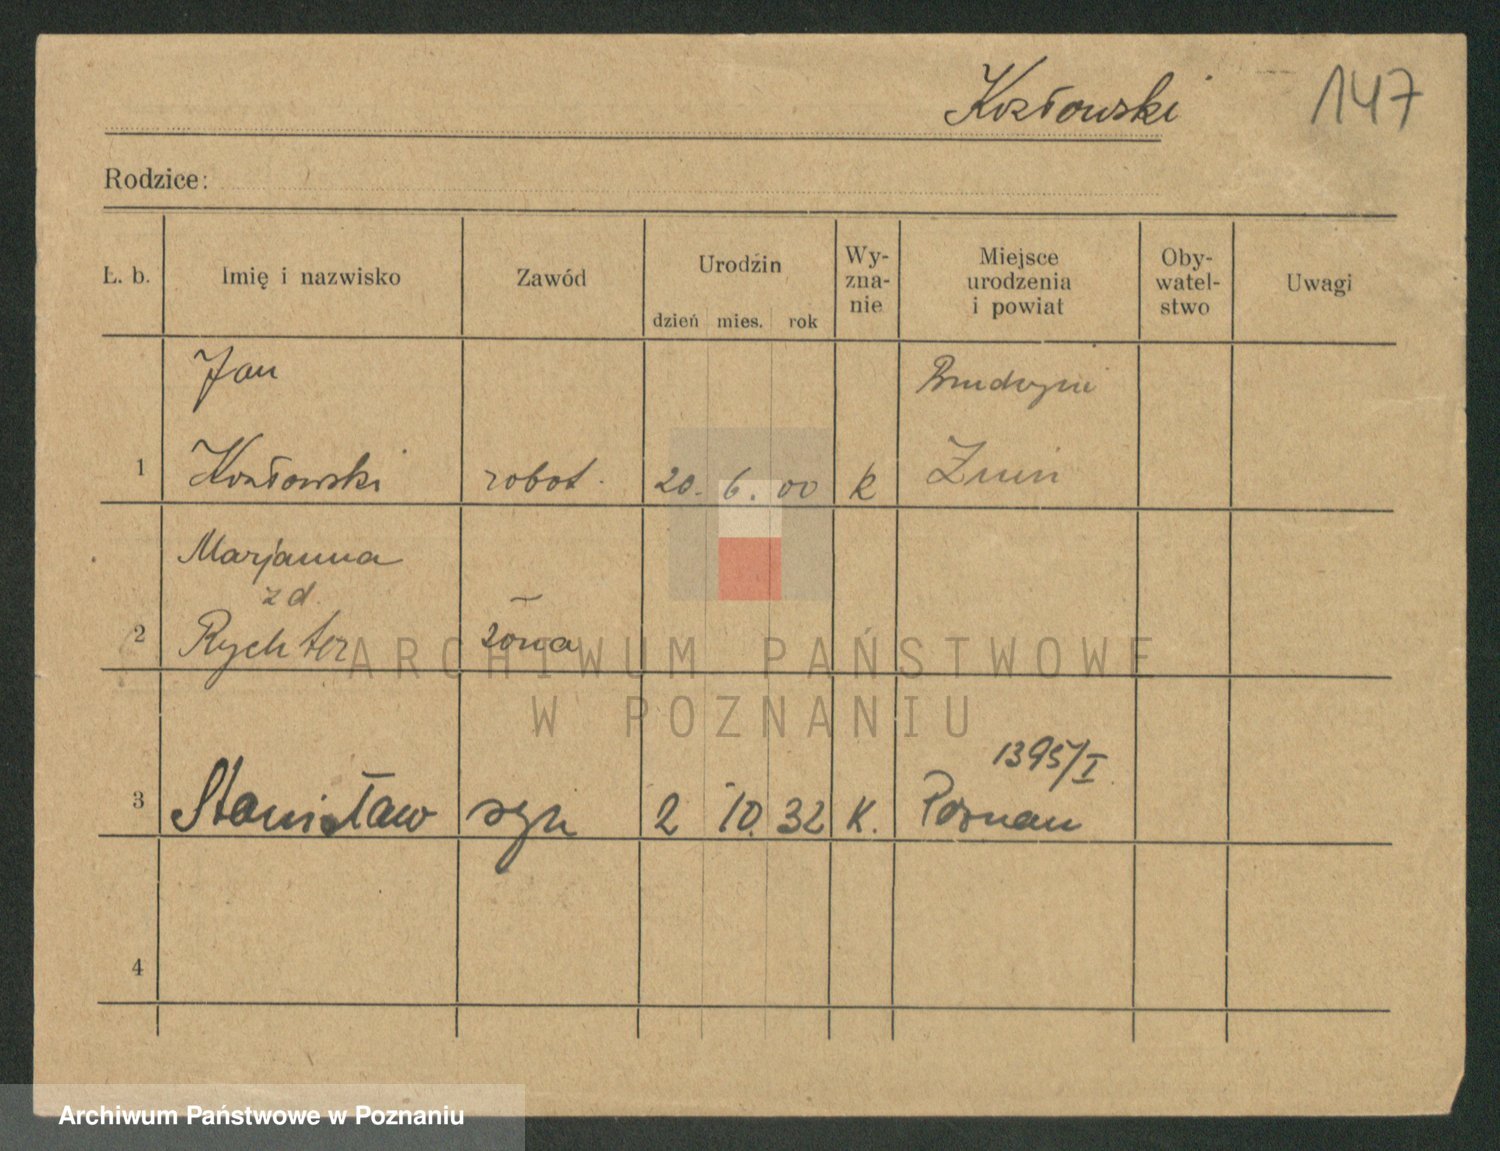 Kozłowski
147
Rodzice:
Ł. b. Imię i nazwisko Zawód Urodzin dzień mies. rok Wy-zna-nie Miejsce urodzenia i powiat Oby-watel-stwo Uwagi
Jan
1 Kozłowski robot. 20. 6. 00 k Żnin
Marjanna
zd.
2 Rychter żona
1395/I
3 Stanisław syn 2 10. 32 K. Poznań
4
ARCHIWUM PAŃSTWOWE
W POZNANIU
Archiwum Państwowe w Poznaniu